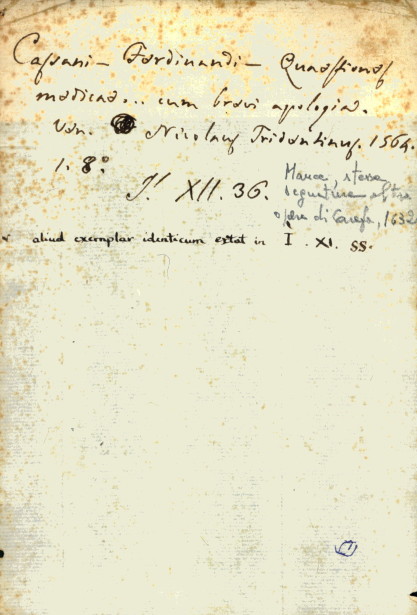 Cassani - Ferdinandi - Quaestiones
medicae... cum brevi apologia.
Ven. Nicolaus Tridentinus. 1564.
1. 8.°
XII. 36.
Manca, stessa
segnatura altra
opera di 1632
aliud exemplar identicum extat in I. XI. 88.
(1)